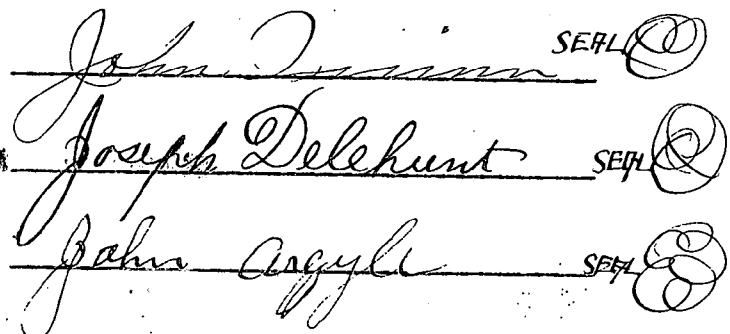 John SEAL
Joseph Delehunt SEAL
John Argyle SEAL